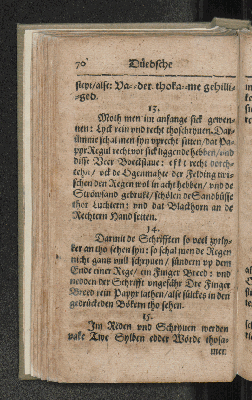 70 Düdesche
steyt/alse: Va=der. thoka=me gehilli=
=ged.
13.
Moth men im anfange sick gewen=
nen: Lyck rein vnd recht thoschryuen. Dar=
ümme schal men syn vprecht sitten/dat Pa=
pyr
Regul recht vor sick liggende hebben/vnd
düsse Veer Boeckstaue: e f k t recht vorthe
vnd de
schen den Regen wol in acht hebben/vnd de
Ströwsand gebruke/schölen de Sandbüsse
thor Luchtern: vnd dat Blackhorn an de
Rechtern Hand setten.
14.
Darmit de Schrifften so veel zyrly=
ker an tho sehen syn: so schal men de Regen
nicht gantz vull schryuen/ sündern vp dem
Ende einer Rege/ ein Finger Breed: vnd
nedden der Schrifft vngefähr Dre Finger
Breed rein Papyr lathen/alse sülckes in den
gedrückeden Bökern tho sehen.
15.
Im Reden vnd Schryuen werden
vake Twe Sylben edder Wörde thosa=
men